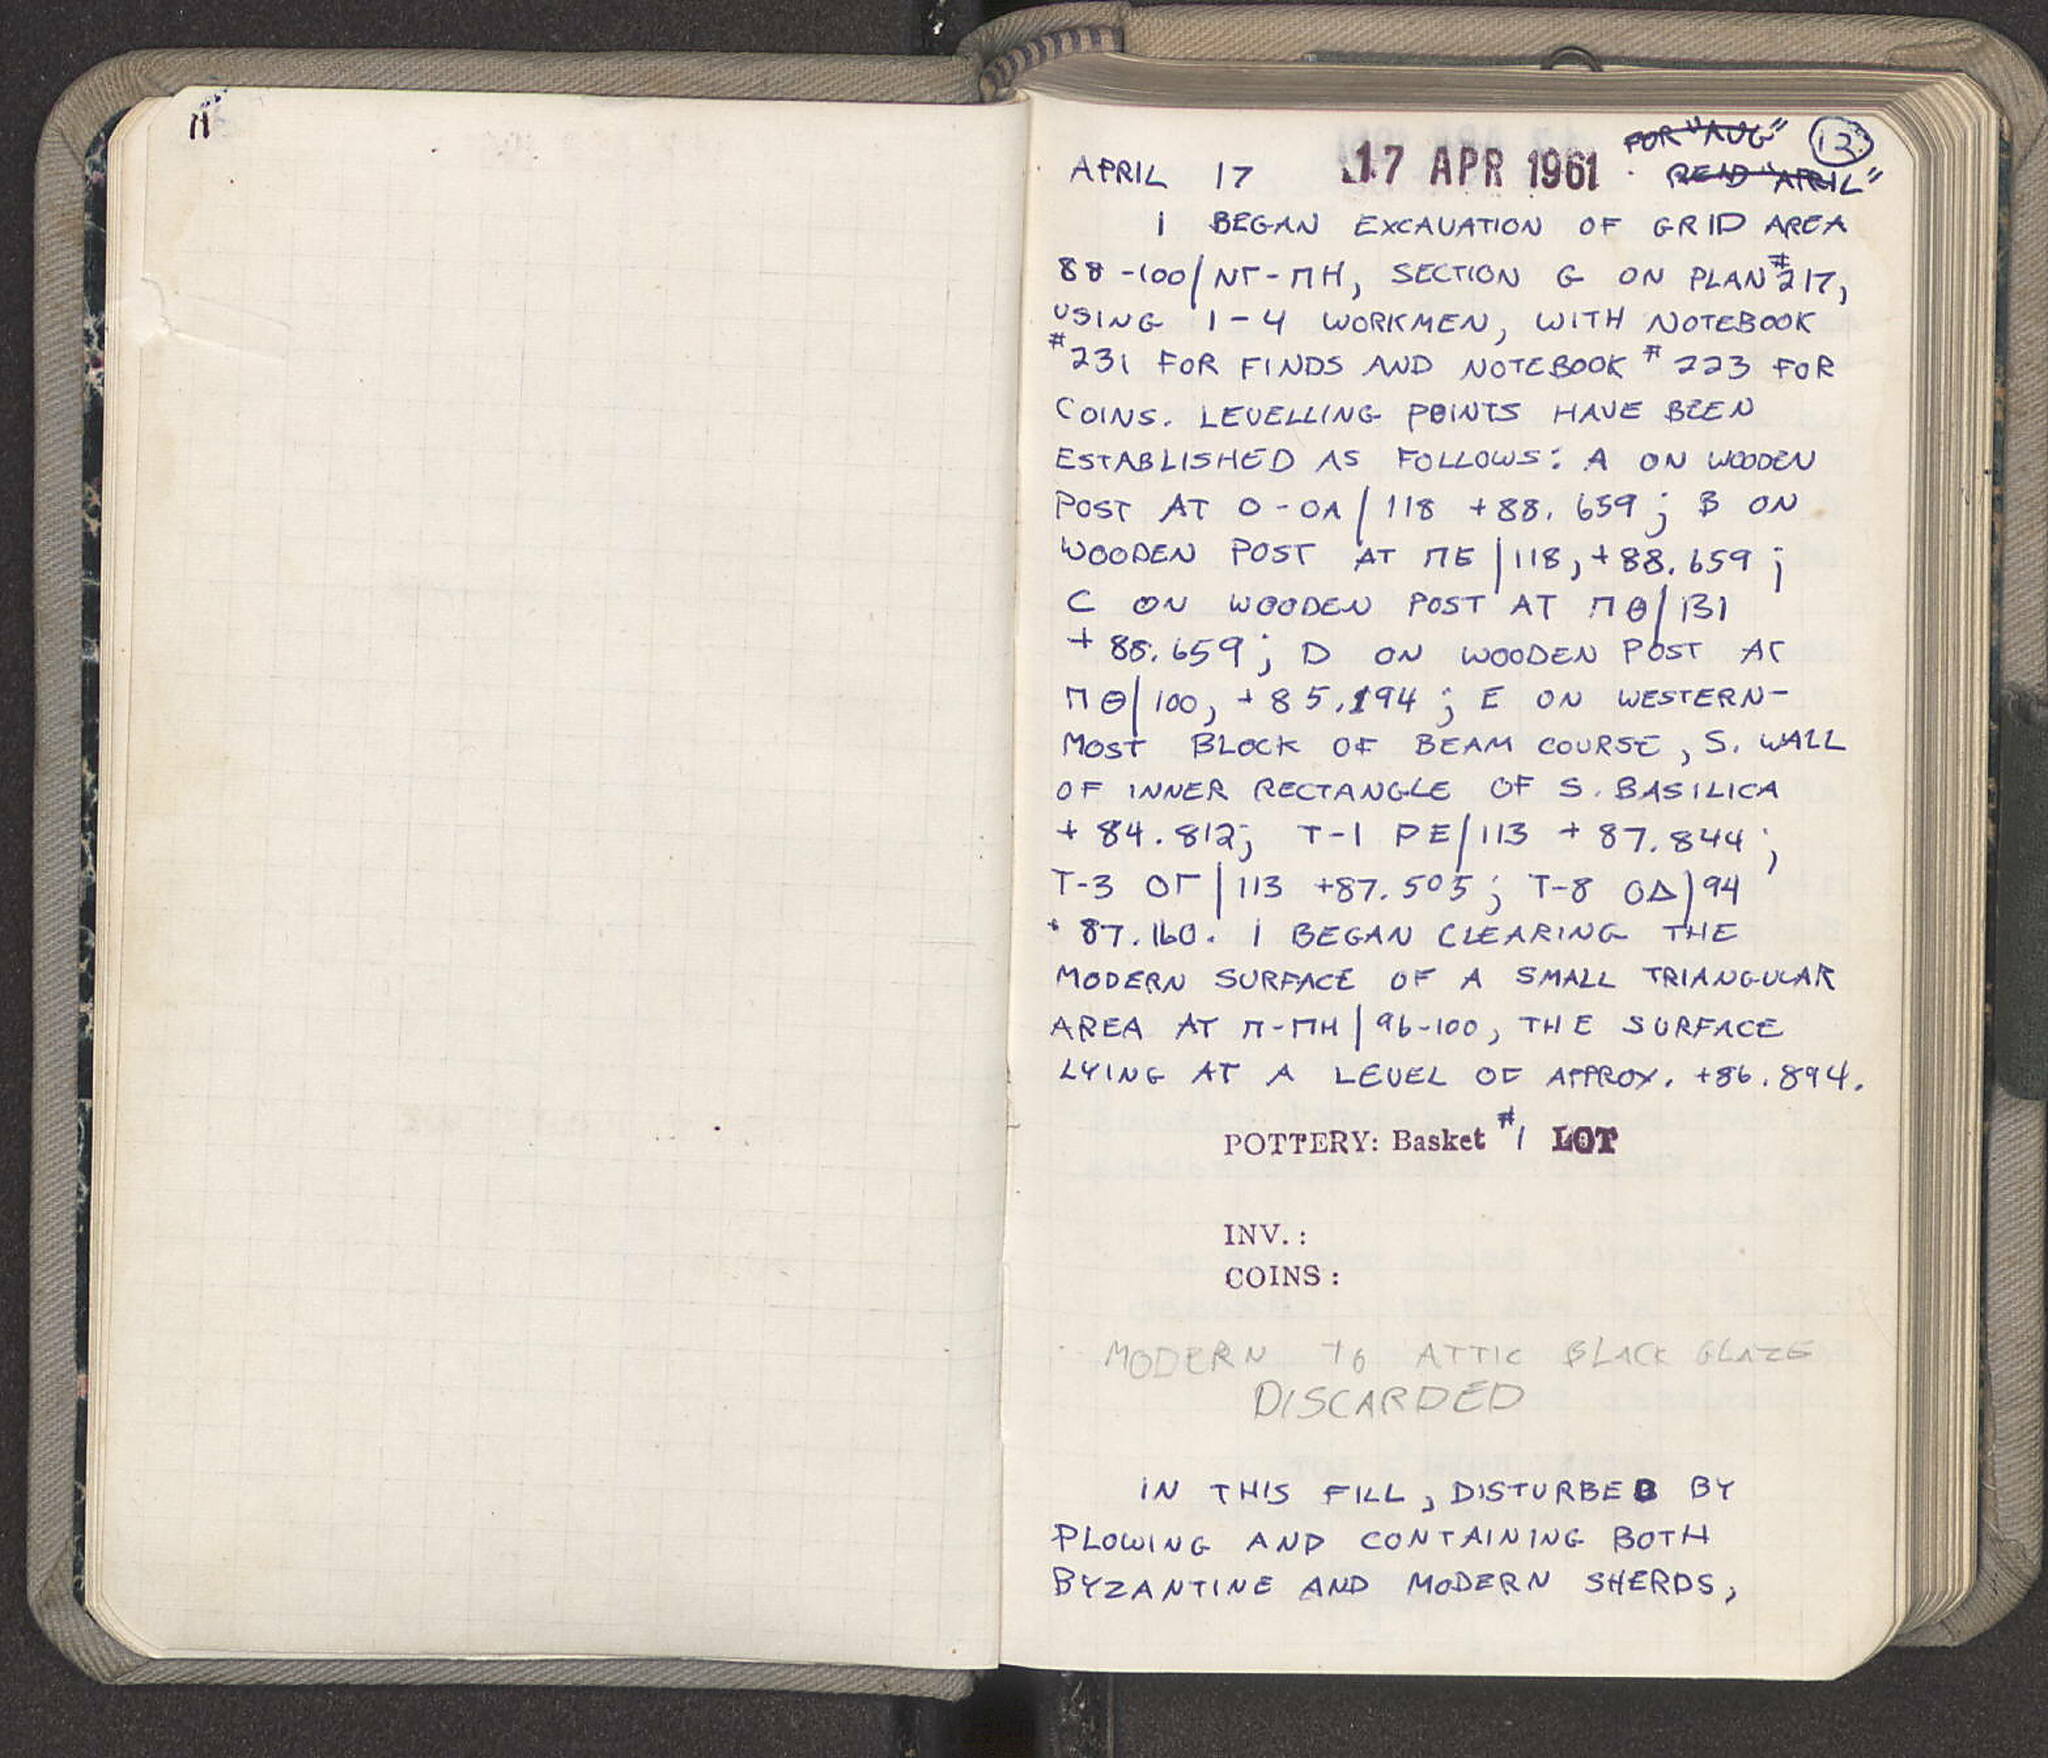 11
FOR "AUG" 12
APRIL 17 17 APR 1961 READ "APRIL"
I BEGAN EXCAVATION OF GRID AREA
88-100/ΝΓ-ΠΗ, SECTION G ON PLAN #217,
USING 1-4 WORKMEN, WITH NOTEBOOK
#231 FOR FINDS AND NOTEBOOK #223 FOR
COINS. LEVELLING POINTS HAVE BEEN
ESTABLISHED AS FOLLOWS: A ON WOODEN
POST AT Ο-ΟΑ/118 +88.659; B ON
WOODEN POST AT ΠΕ/118, +88.659;
C ON WOODEN POST AT ΠΘ/131
+88.659; D ON WOODEN POST AT
ΠΘ/100, +85.194; E ON WESTERN-
MOST BLOCK OF BEAM COURSE, S. WALL
OF INNER RECTANGLE OF S. BASILICA
+84.812; T-1 ΡΕ/113 +87.844;
T-3 ΟΓ/113 +87.505; T-8 ΟΔ/94
+87.160. I BEGAN CLEARING THE
MODERN SURFACE OF A SMALL TRIANGULAR
AREA AT Π-ΠΗ/96-100, THE SURFACE
LYING AT A LEVEL OF APPROX. +86.894.
POTTERY: Basket #1 LOT
INV.:
COINS:
MODERN TO ATTIC BLACK GLAZE
DISCARDED
IN THIS FILL, DISTURBED BY
PLOWING AND CONTAINING BOTH
BYZANTINE AND MODERN SHERDS,